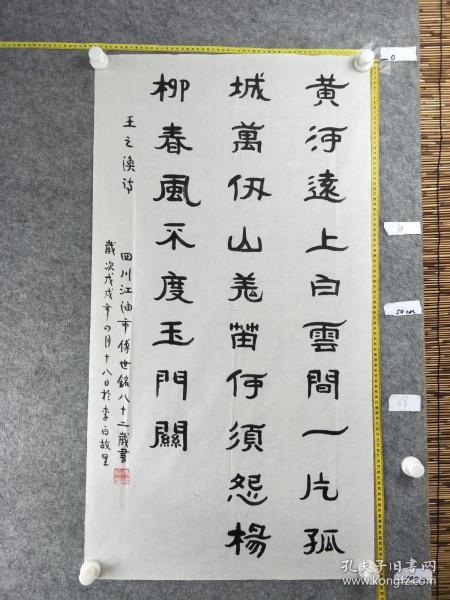 黄河遠上白雲間一片孤
城萬仞山羌笛何須怨楊
柳春風不度玉門關
王之渙詩
四川江油市傅世銘八十二歲書
歲次戊戌年四月十八日於李白故里
0
50cm
孔夫子旧书网